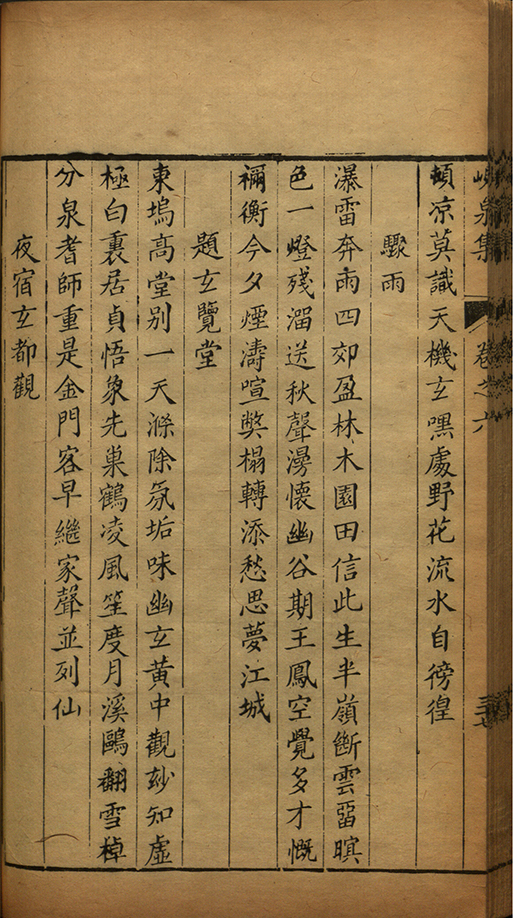 峴泉集 卷之六
頓凉莫識天機玄嘿處野花流水自徬徨
驟雨
瀑雷奔雨四郊盈林木園田信此生半嶺斷雲留暝
色一燈殘溜送秋聲漫懷幽谷期王鳳空覺多才慨
禰衡今夕煙濤喧獘榻轉添愁思夢江城
題玄覽堂
東塢高堂别一天滌除氛垢味幽玄黄中觀玅知虛
極白裏居貞悟象先巢鶴凌風笙度月溪鷗翻雪棹
分泉耆師重是金門客早繼家聲並列仙
夜宿玄都觀